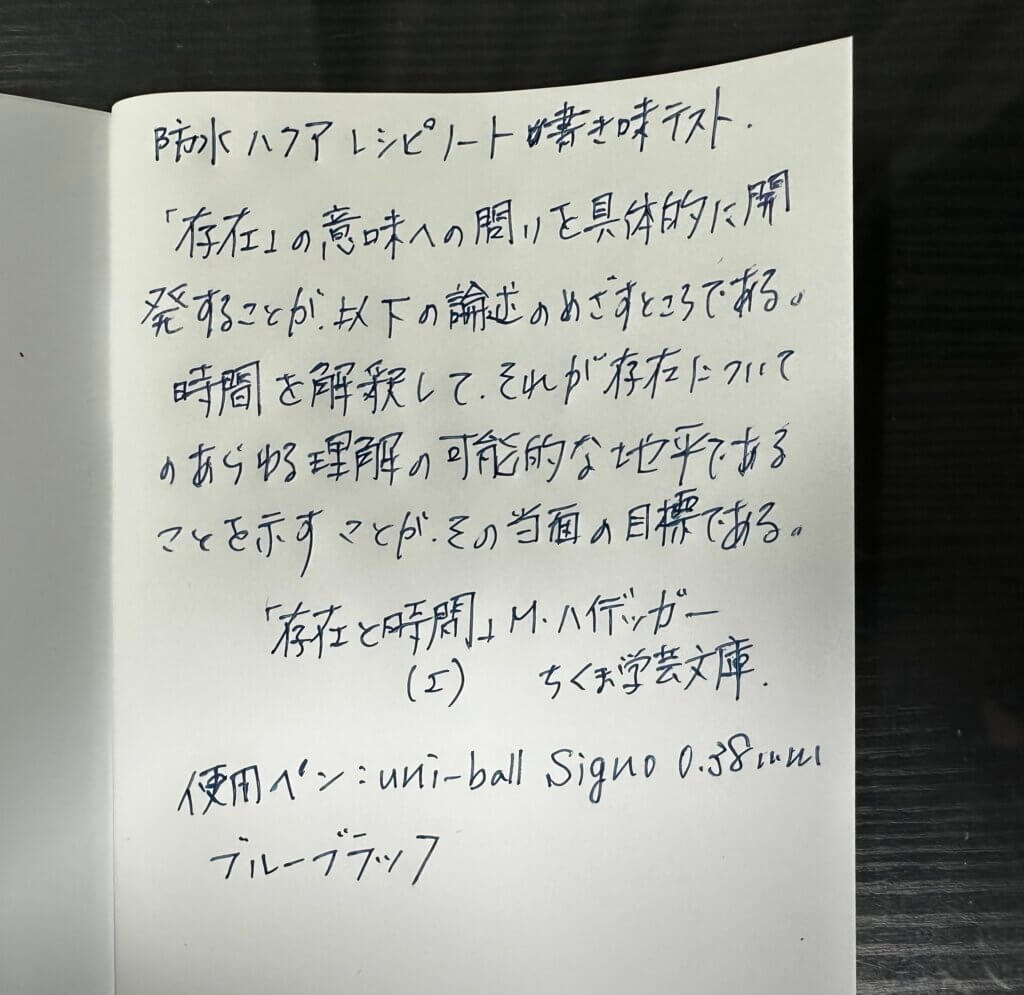 防水ハクアレシピノート 書き味テスト.
「存在」の意味への問いを具体的に開
発することが、以下の論述のめざすところである。
時間を解釈して、それが存在について
のあらゆる理解の可能的な地平である
ことを示すことが、その当面の目標である。
「存在と時間」M.ハイデッガー
(I) ちくま学芸文庫.
使用ペン:uni-ball Signo 0.38mm
ブルーブラック